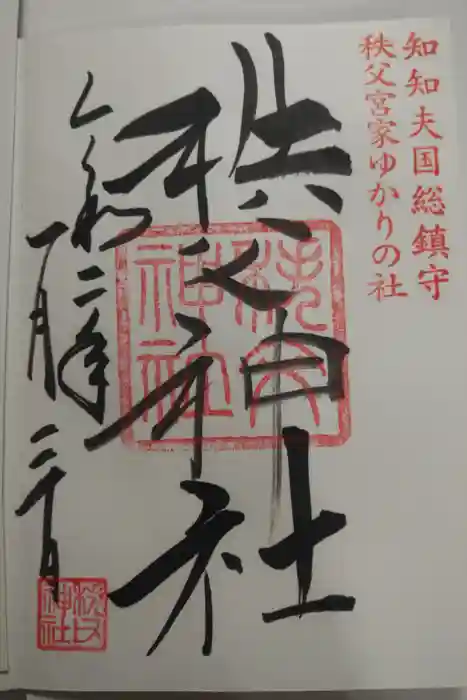 知知夫国総鎮守
秩父宮家ゆかりの社
秩父神社
秩父神社
令和二年
一月二十日
秩父神社